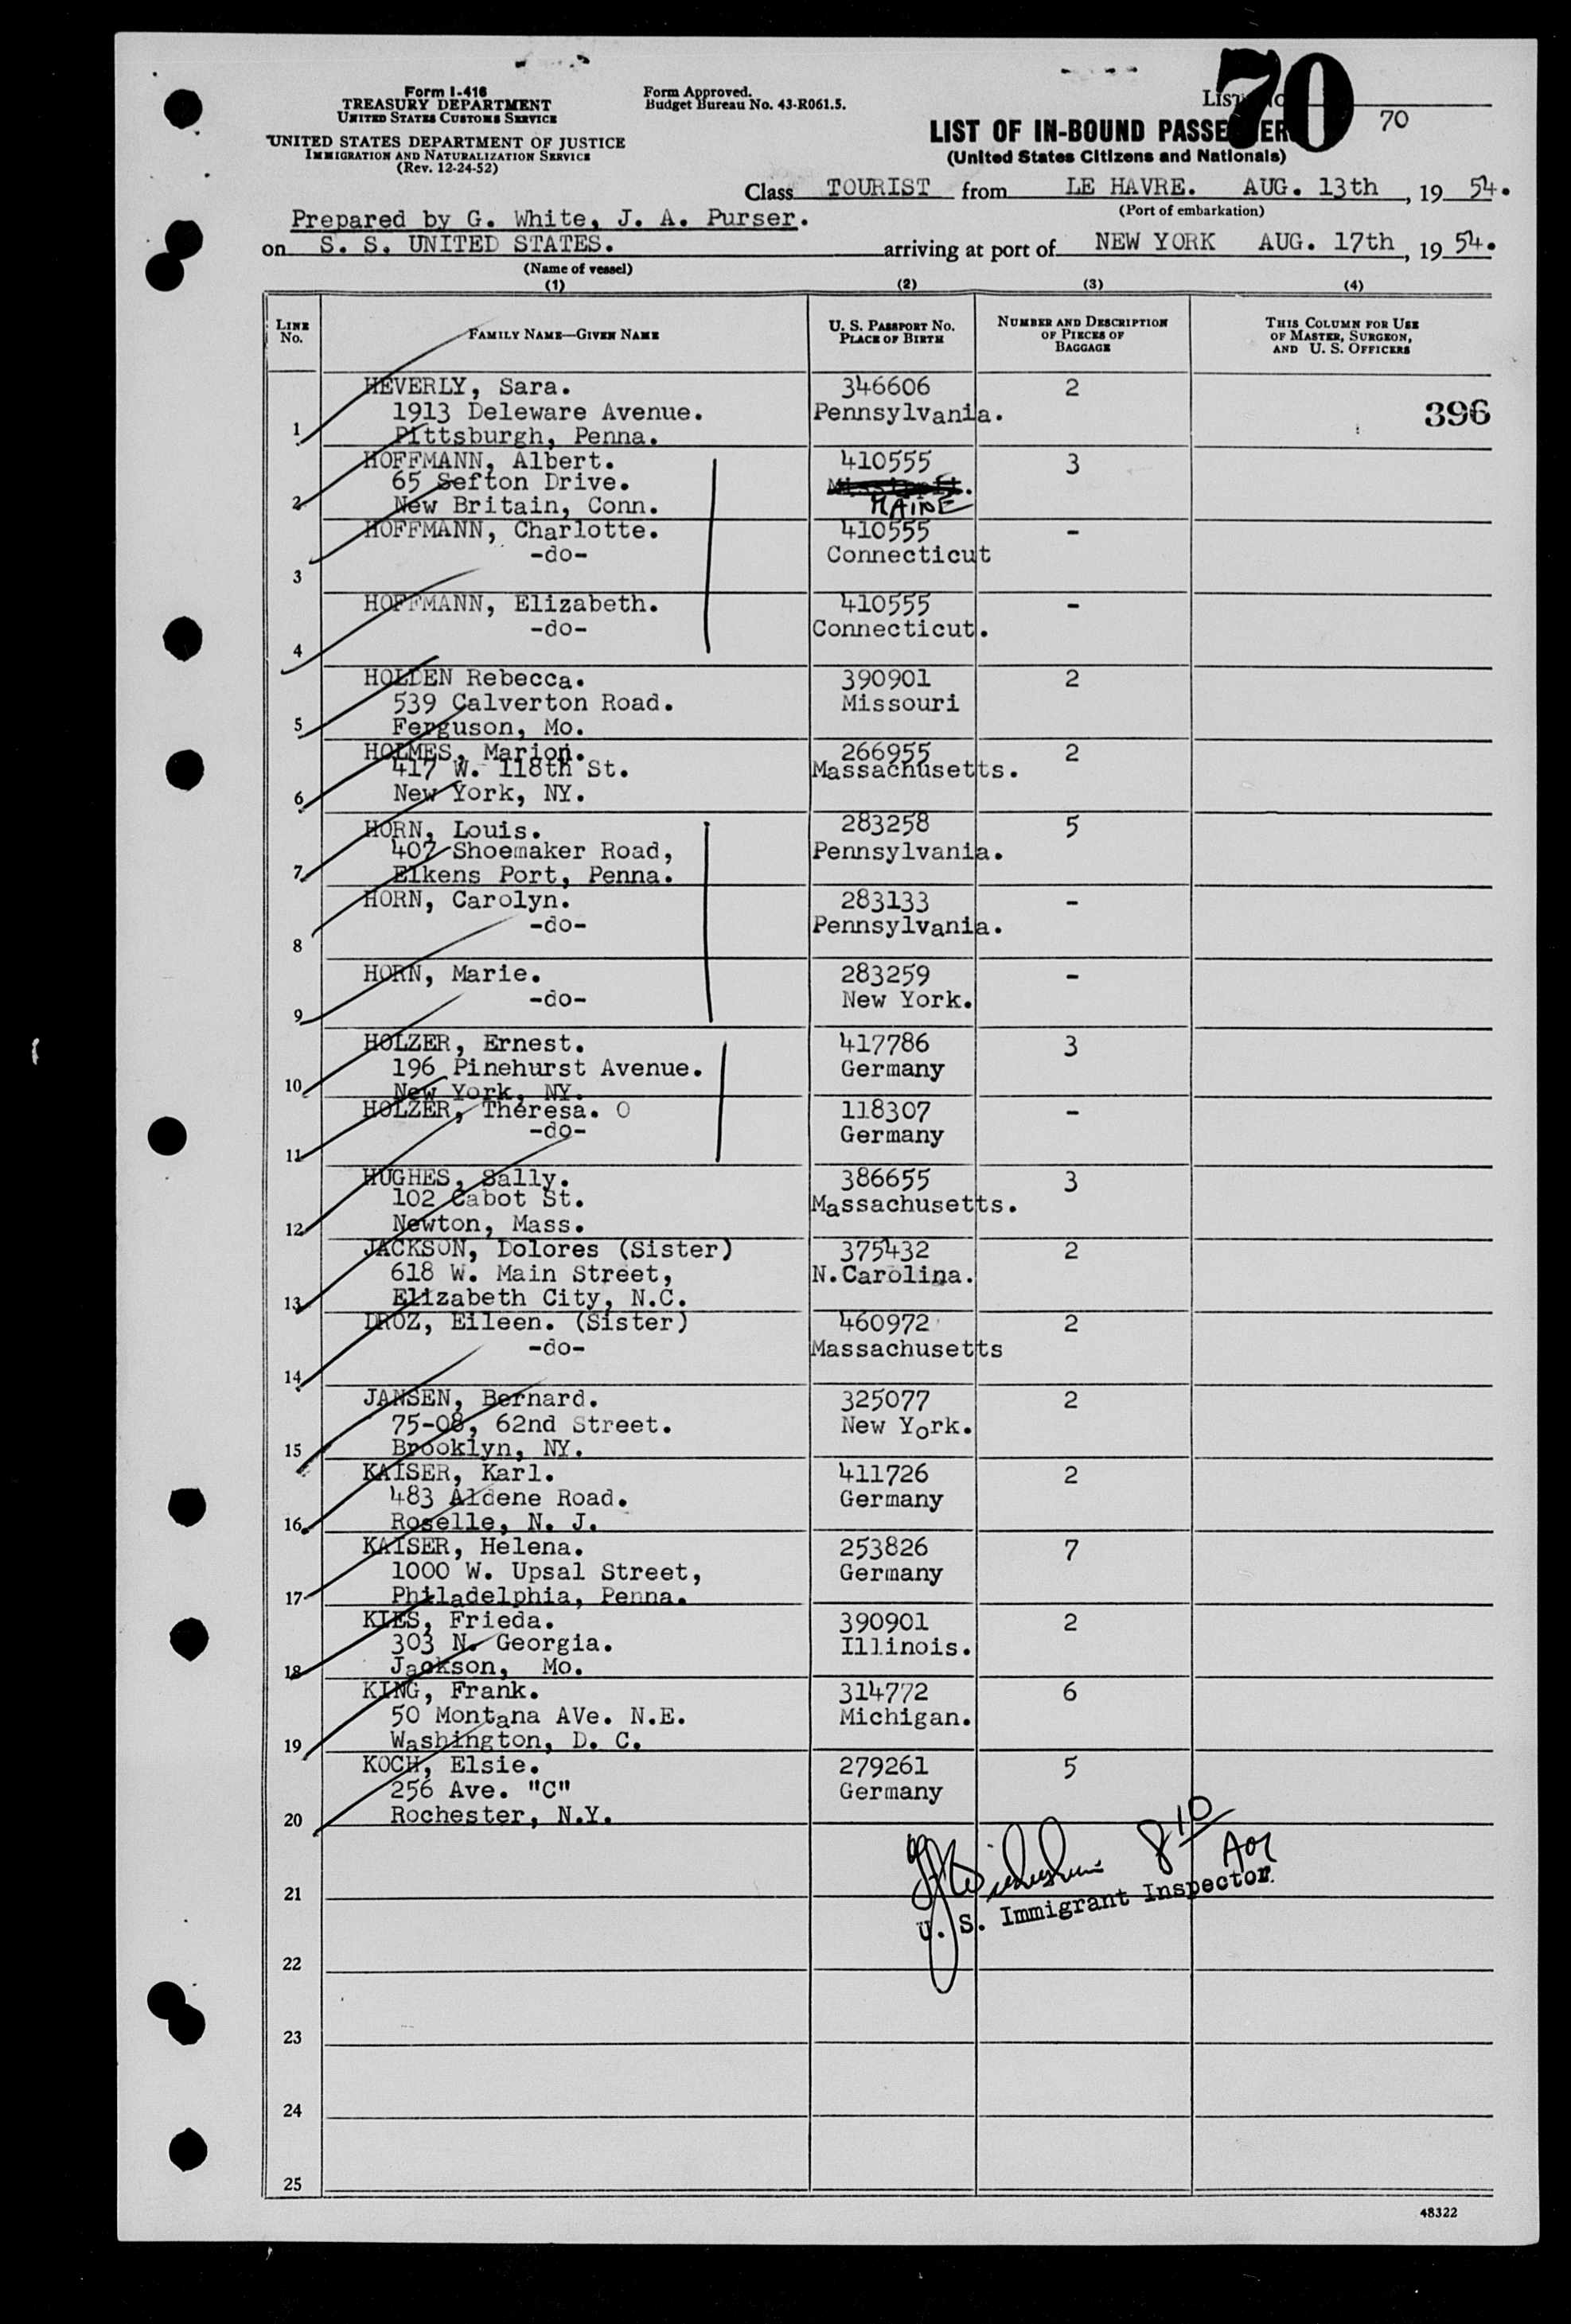 Form I-416
TREASURY DEPARTMENT
UNITED STATES CUSTOMS SERVICE
UNITED STATES DEPARTMENT OF JUSTICE
IMMIGRATION AND NATURALIZATION SERVICE
(Rev. 12-24-52)
Form Approved.
Budget Bureau No. 43-R061.5.
70
70
LIST OF IN-BOUND PASSENGERS
(United States Citizens and Nationals)
Class TOURIST from LE HAVRE. AUG. 13th, 19 54.
(Port of embarkation)
Prepared by G. White, J. A. Purser.
on S. S. UNITED STATES. arriving at port of NEW YORK AUG. 17th, 19 54.
(Name of vessel)
(1) (2) (3) (4)
LINE No. FAMILY NAME—GIVEN NAME U. S. PASSPORT No. PLACE OF BIRTH NUMBER AND DESCRIPTION OF PIECES OF BAGGAGE THIS COLUMN FOR USE OF MASTER, SURGEON, AND U. S. OFFICERS
HEVERLY, Sara. 346606 2
1913 Deleware Avenue. Pennsylvania. 396
1 Pittsburgh, Penna.
HOFFMANN, Albert. 410555 3
65 Sefton Drive.
2 New Britain, Conn. MAINE
HOFFMANN, Charlotte. 410555 -
-do- Connecticut
3
HOFFMANN, Elizabeth. 410555 -
-do- Connecticut.
4
HOLDEN Rebecca. 390901 2
539 Calverton Road. Missouri
5 Ferguson, Mo.
HOLMES, Marion. 266955 2
417 W. 118th St. Massachusetts.
6 New York, NY.
HORN, Louis. 283258 5
407 Shoemaker Road, Pennsylvania.
7 Elkens Port, Penna.
HORN, Carolyn. 283133 -
-do- Pennsylvania.
8
HORN, Marie. 283259 -
-do- New York.
9
HOLZER, Ernest. 417786 3
196 Pinehurst Avenue. Germany
10 New York, NY.
HOLZER, Theresa. O 118307 -
-do- Germany
11
HUGHES, Sally. 386655 3
102 Cabot St. Massachusetts.
12 Newton, Mass.
JACKSON, Dolores (Sister) 375432 2
618 W. Main Street, N.Carolina.
13 Elizabeth City, N.C.
DROZ, Eileen. (Sister) 460972 2
-do- Massachusetts
14
JANSEN, Bernard. 325077 2
75-08, 62nd Street. New York.
15 Brooklyn, NY.
KAISER, Karl. 411726 2
483 Aldene Road. Germany
16 Roselle, N. J.
KAISER, Helena. 253826 7
1000 W. Upsal Street, Germany
17 Philadelphia, Penna.
KIES, Frieda. 390901 2
303 N. Georgia. Illinois.
18 Jackson, Mo.
KING, Frank. 314772 6
50 Montana AVe. N.E. Michigan.
19 Washington, D. C.
KOCH, Elsie. 279261 5
256 Ave. "C" Germany
20 Rochester, N.Y.
8 10
21 U. S. Immigrant Inspector.
22
23
24
25
48322